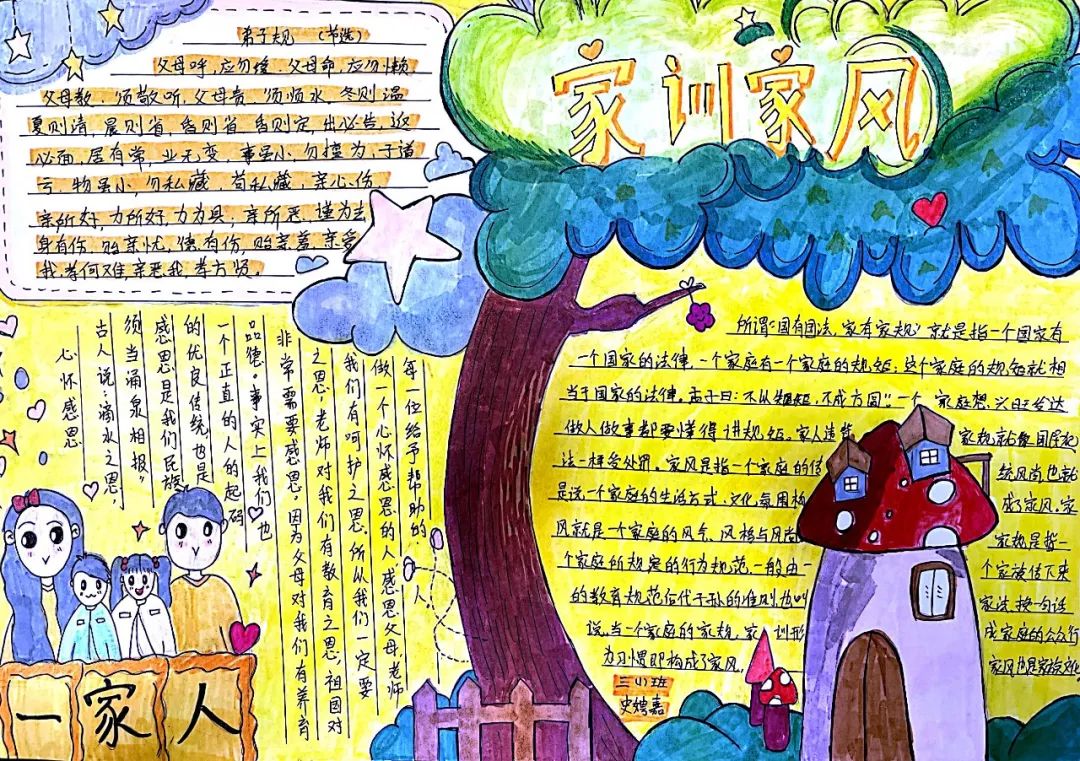 家训家风
弟子规 (节选)
父母呼,应勿缓.父母命,应勿懒
父母教,须敬听,父母责,须顺水,冬则温
夏则清,晨则省,昏则省 昏则定,出必告,返
必面,居有常,业无变,事虽小,勿擅为,子道
亏,物虽小,勿私藏,苟私藏,亲心伤
亲所好,力所好,力为具,亲所恶,谨为去
身有伤,贻亲忧,德有伤,贻亲羞,亲爱
我,孝何难,亲恶我,孝方贤。
心怀感恩
古人说:滴水之恩,
须当涌泉相报,
感恩是我们民族
的优良传统也是
一个正直的人的起码
品德。事实上我们也
非常需要感恩。因为父母对我们有养育
之恩,老师对我们有教育之恩,祖国对
我们有呵护之恩,所从我们一定要
做一个心怀感恩的人 感恩父母,老师
每一位给予帮助的人
所谓“国有国法,家有家规”就是指一个国家有
一个国家的法律,一个家庭有一个家庭的规矩,这个家庭的规矩就相
当于国家的法律。孟子曰:不从规矩,不成方圆”!一个 家庭想兴旺发达
做人做事都要懂得讲规矩。家人违 家规就像国
法一样受处罚。家风是指一个家庭的传 统风尚也就
是说一个家庭的生活方式、文化氛围构 成了家风。家
风就是一个家庭的风气、风格与风尚 家规是指
一个家庭所规定的行为规范,一般由一 个家族传下来
的教育规范后代子孙的准则,也叫 家法,换句话
说,当一个家庭的家规,家训形 成家庭的公众行
为习惯即构成了家风, 家风也是家族
三(1)班
史娉嘉
一家人